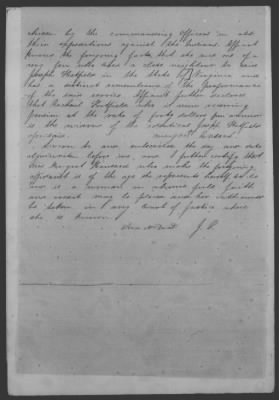 chosen by the commanding officers in all
their oppositions against the Indians. Affiant
knows the foregoing facts that she was one of a
very few who was a close neighbor to him
Joseph Hatfield in the State of Virginia and
has a distinct remembrance of the performance
of the said service. Affiant further declares
that Rachael Hatfield who is now receiving
pension at the rate of forty dollars per annum
is the widow of the identical Joseph Hatfield
aforesaid.
Sworn to and subscribed the day and date
above written before me, and I further certify that
Mrs Margaret who makes the foregoing
affidavit is of the age she represents herself to be
and is a woman in whom full faith
and credit may be placed and her testimony
be taken in any court of Justice where
she is known.
J. P.